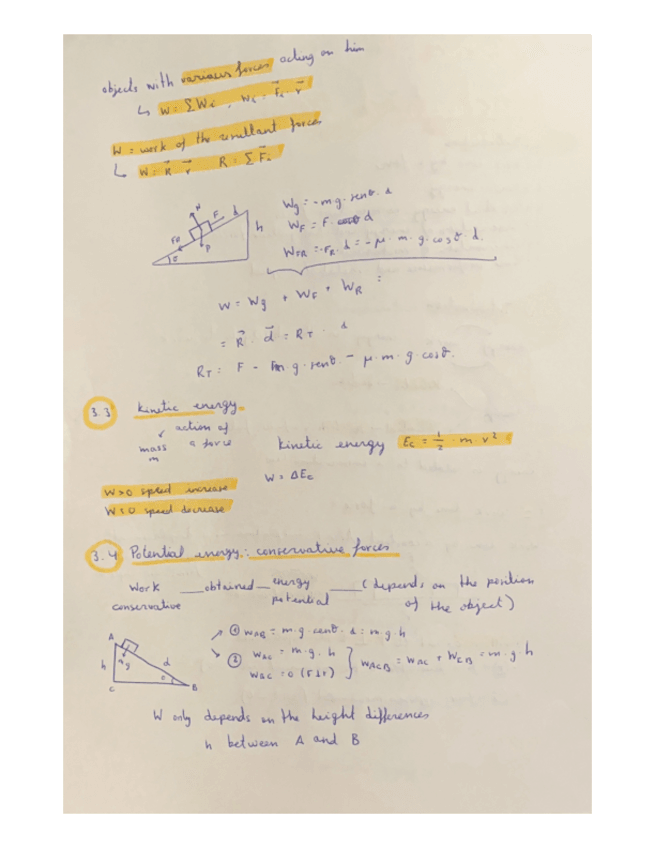 objects with various forces acting on him
↳ W = ΣWi , Wi = F⃗i · r⃗
W = work of the resultant forces
↳ W = R⃗ · r⃗ R = ΣF⃗i
N F d h
FR P θ
Wg = -m·g·senθ·d
WF = F · d
WFR = -FR · d = -μ·m·g·cosθ·d.
W = Wg + WF + WR =
= R⃗ · d⃗ = RT · d
RT = F - m·g·senθ - μ·m·g·cosθ.
3.3 kinetic energy.
action of
mass a force
m
kinetic energy Ec = 1/2 · m · v²
W = ΔEc
W>0 speed increase
W<0 speed decrease
3.4 Potential energy: conservative forces
Work __ obtained __ energy __ (depends on the position
conservative potential of the object)
A
h g d
C B
① WAB = m·g·senθ·d = m·g·h
② WAC = m·g·h
WAC = 0 (F⊥r) } WACB = WAC + WCB = m·g·h
W only depends on the height differences
h between A and B